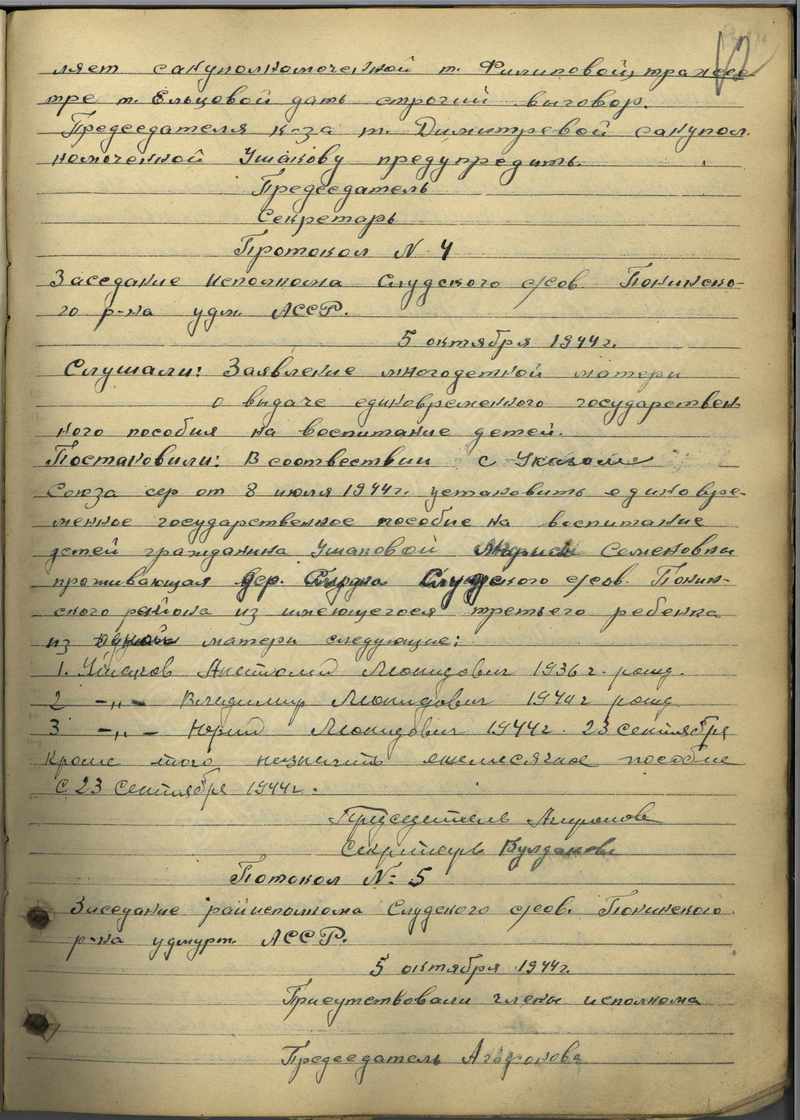 ляет сануполномоченной т. Филиповой,
тре т. Ельцовой дать строгий выговор.
Председателя к-за т. Димитревой санупол.
номоченной Ушакову предупредить.
Председатель
Секретарь
Протокол N 4
Заседание исполкома Слудского с/сов. Понинско-
го р-на удм. АССР.
5 октября 1944 г.
Слушали: Заявление многодетной матери
о выдаче единовременного государствен
ного пособия на воспитание детей.
Постановили: В соотвествии с Указом
Союза сср от 8 июля 1944 г. установить единовре-
менное государственное пособие на воспитание
детей гражданина Ушаковой Семеновны
проживающая дер. Слудка Слудского с/сов. Понин-
ского района из имеющегося третьего ребенка
из одной матери следующие:
1. Ушаков Анатолий Леонидович 1936 г. рожд.
2 -„- Владимир Леонидович рожд
3 -„- Юрий Леонидович 1944 г. 23 сентября
кроме того назначить ежемесячное пособие
с 23 сентября 1944 г.
Председатель Агафонова
Секретарь Булдакова
Потокол №: 5
Заседание райисполкома Слудского с/сов. Понинского
р-на удмурт. АССР.
5 октября 1944 г.
Присутствовали члены исполкома
Председатель Агафонова